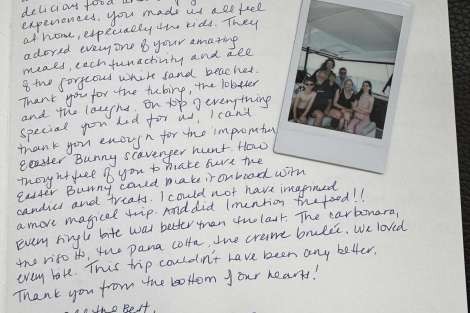 delicious food
experiences, you made us all feel
at home, especially the kids. They
adored everyone of your amazing
meals, each fun activity and all
of the gorgeous white sand beaches.
Thank you for the tubing, the lobster
and the laughs. On top of everything
special you did for us, I can't
thank you enough for the impromptu
Easter Bunny scavenger hunt. How
thoughtful of you to make sure the
Easter Bunny could make it onboard with
candies and treats. I could not have imagined
a more magical trip. And did I mention the food!!
Every single bite was better than the last. The carbonara,
the risotto, the pana cotta, the creme brulée. We loved
every bite. This trip couldn't have been any better.
Thank you from the bottom of our hearts!
the Best,